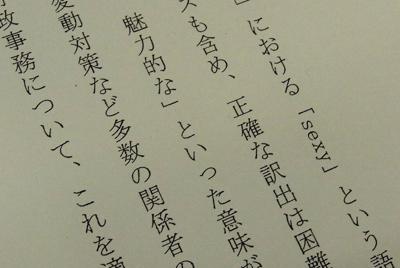 」における「sexy」という語
スも含め、正確な訳出は困難
魅力的な」といった意味が
変動対策など多数の関係者の
政事務について、これを適